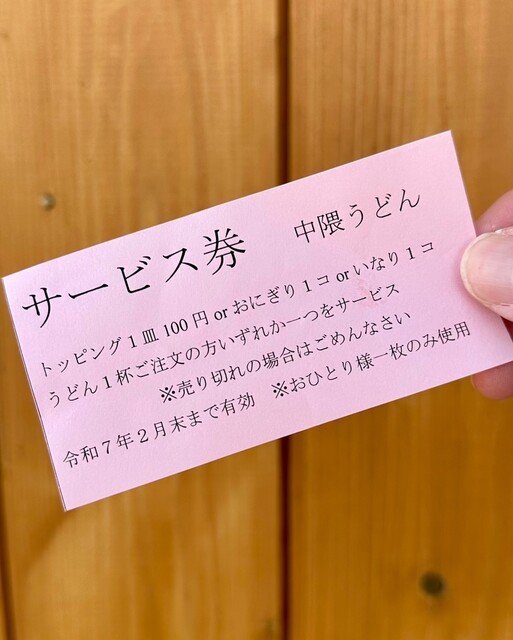 サービス券　中隈うどん
トッピング1皿100円 or おにぎり1コ or いなり1コ
うどん1杯ご注文の方いずれか一つをサービス
※売り切れの場合はごめんなさい
令和7年2月末まで有効　※おひとり様一枚のみ使用